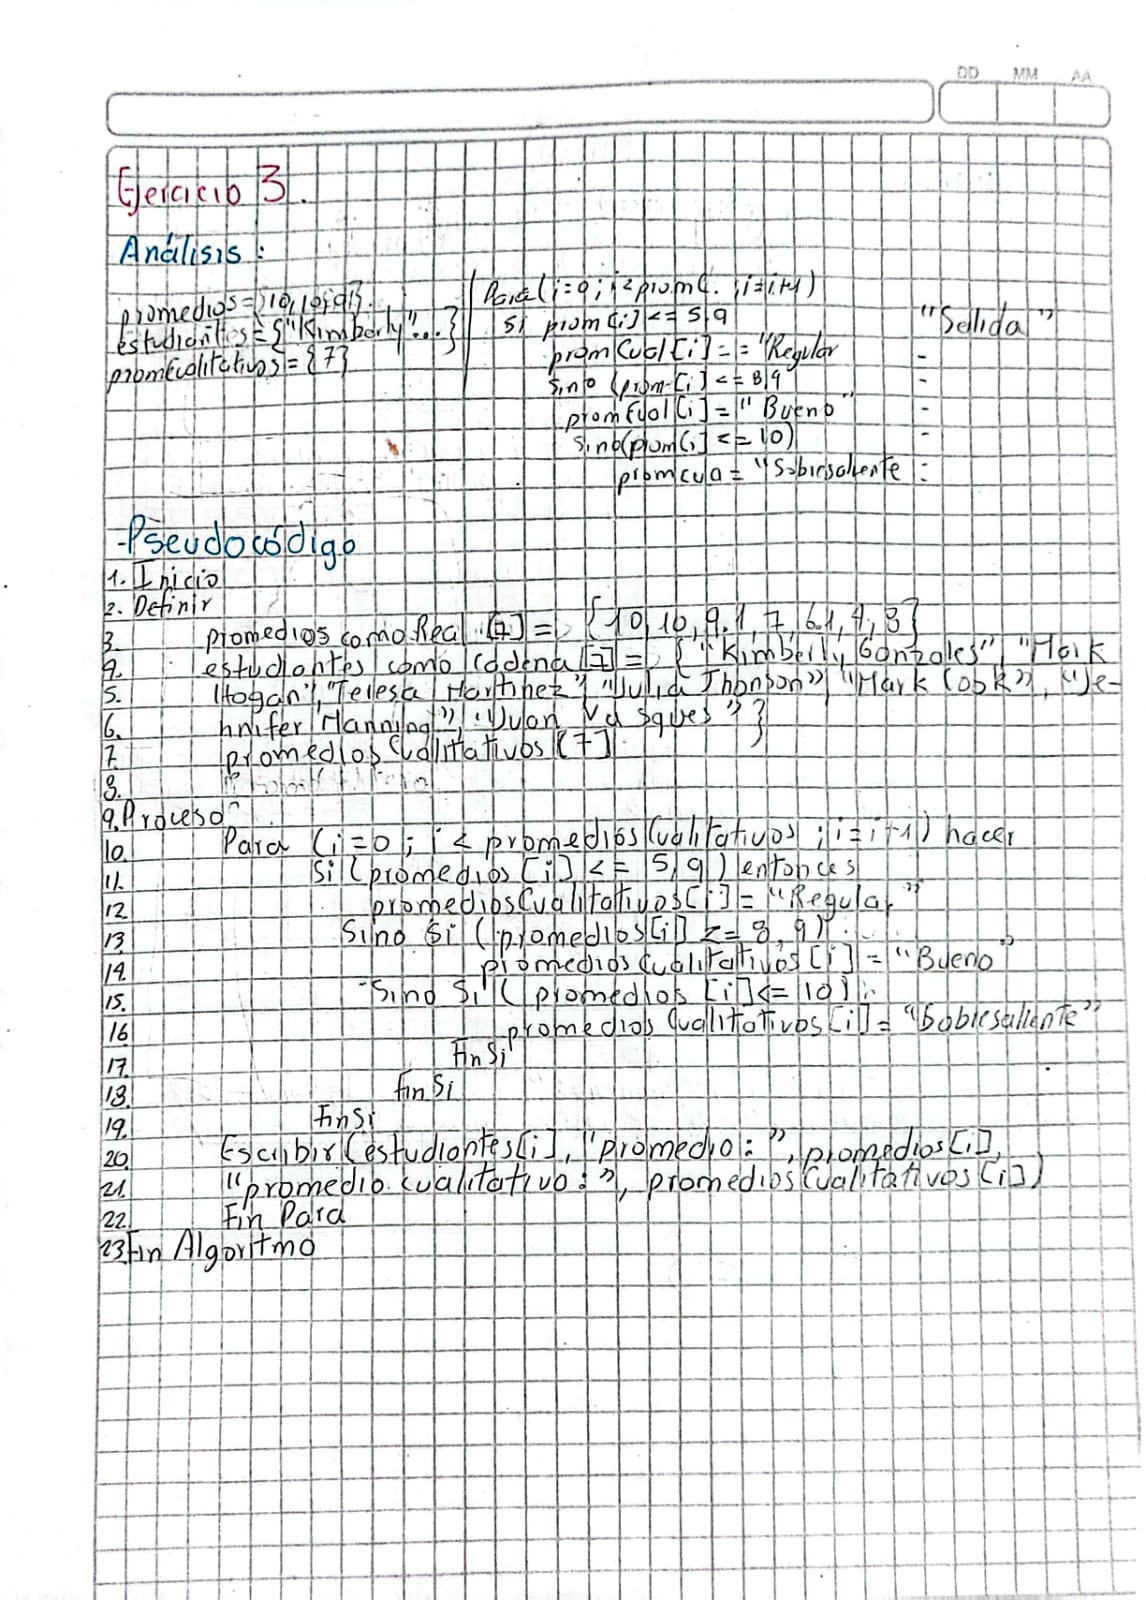 DD MM AA
Ejercicio 3.
Análisis :
promedios={10,10,9.1}.
estudiantes={"Kimberly"...}
promCualitativos={7}
Para(i=0; i<promC. ;i=i+1)
Si prom[i]<=5,9
promCual[i]=="Regular
Sino (prom[i]<=8,9
promCual[i]="Bueno"
Sino(prom[i]<=10)
promcua="Sobresaliente
"Salida"
-Pseudocódigo
1. Inicio
2. Definir
3. promedios como Real [7] = {10,10,9.1,7,6.1,4,8}
4. estudiantes como cadena[7]= {"Kimberly Gonzales" "Mark
5. Hogan","Teresa Martinez","Julia Jhonson","Mark Cook","Je-
6. hnifer Manning", "Juan Vasques"}
7. promedios Cualitativos [7]
8.
9.Proceso
10. Para (i=0; i < promedios Cualitativos ; i=i+1) hacer
11. Si (promedios[i] <= 5,9) entonces
12 promediosCualitativos[i]= "Regular"
13 Sino Si (promedios[i] <= 8,9)
14. promedios Cualitativos[i] = "Bueno"
15. Sino Si ( promedios [i]<=10)
16 promedios Cualitativos[i]= "Sobresaliente"
17. Fin Si
18. Fin Si
19. FinSi
20. Escribir(estudiantes[i], "promedio: ", promedios[i],
21. "promedio cualitativo: ", promedios Cualitativos[i])
22. Fin Para
23 Fin Algoritmo